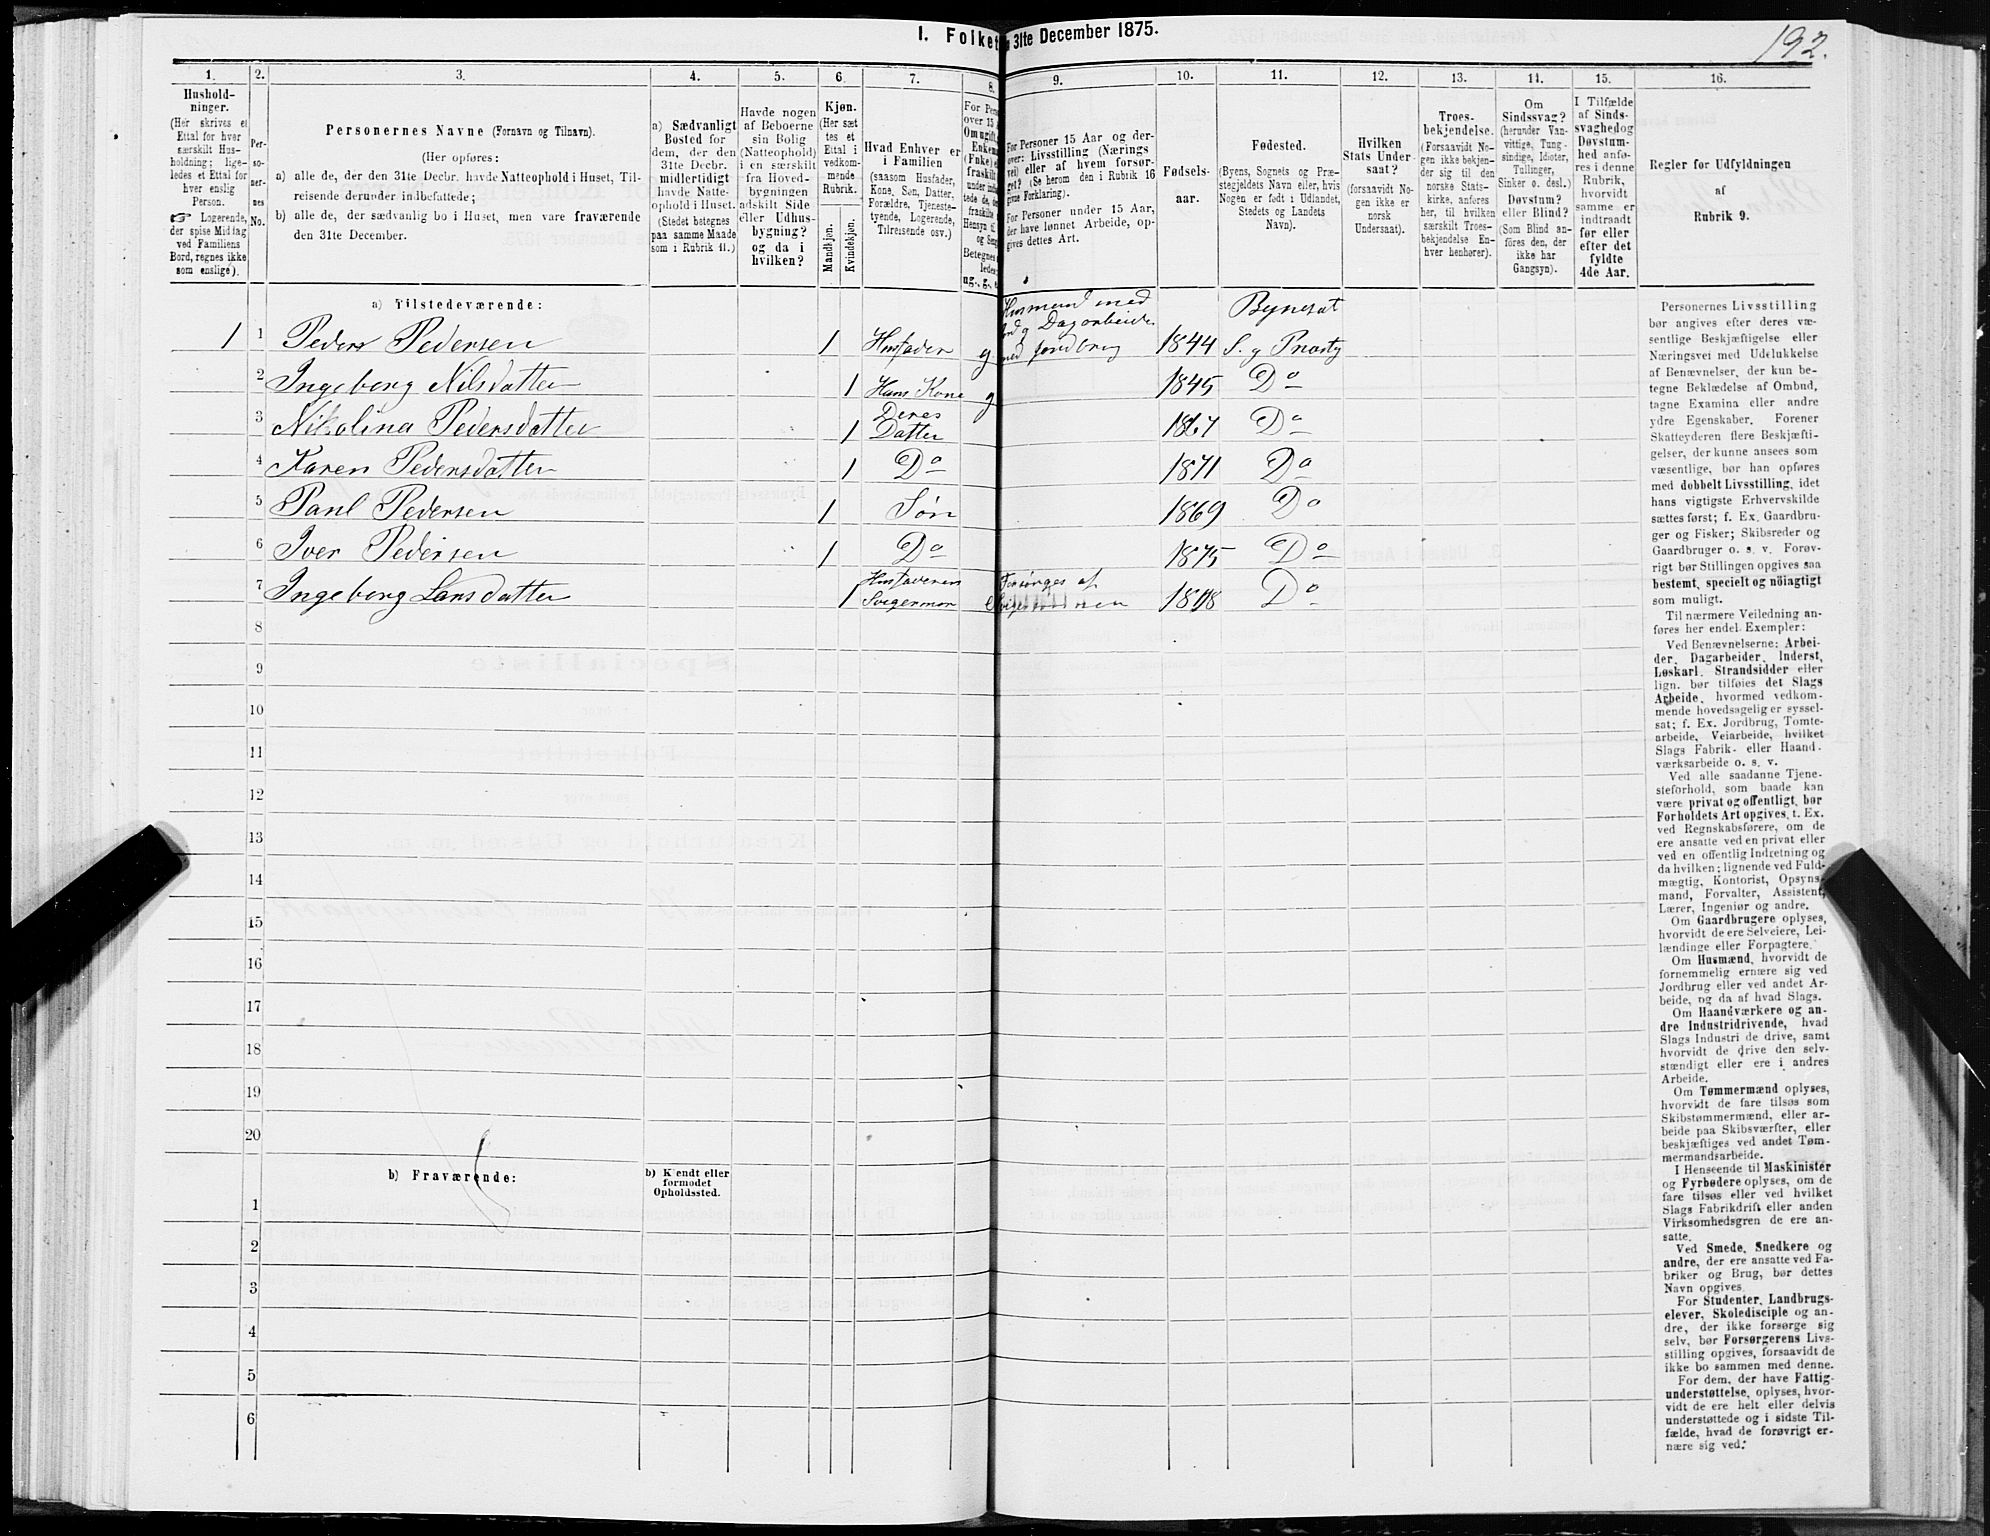 I. Folket
31te December 1875.
192.
1.
2.
3.
4.
5.
6.
7.
8.
9.
10.
11.
12.
13.
14.
15.
16.
Hushold-
ninger.
(Her skrives et
Ettal for hver
særskilt Hus-
holdning; lige-
ledes et Ettal for
hver enslig
Person.
☞ Logerende,
der spise Middag
ved Familiens
Bord, regnes ikke
som enslige).
Per-
so-
ner-
nes
No.
Personernes Navne (Fornavn og Tilnavn).
(Her opføres:
a) alle de, der den 31te Decbr. havde Natteophold i Huset, Til-
reisende derunder indbefattede;
b) alle de, der sædvanlig bo i Huset, men vare fraværende
den 31te December.
a) Sædvanligt
Bosted for
dem, der den
31te Decbr.
midlertidigt
havde Natte-
ophold i Huset.
(Stedet betegnes
paa samme Maade
som i Rubrik 11.)
Havde nogen
af Beboerne
sin Bolig
(Natteophold)
i en særskilt
fra Hoved-
bygningen
adskilt Side
eller Udhus-
bygning?
og da i
hvilken?
Kjøn.
(Her sæt
tes et
Ettal i
vedkom-
mende
Rubrik.
Mandkjøn.
Kvindekjøn.
Hvad Enhver er
i Familien
(saasom Husfader,
Kone, Søn, Datter,
Forældre, Tjeneste-
tyende, Logerende,
Tilreisende osv.)
For Pers
over 15 A
Om ugift
Enkem
(Enke) e
fraskilt
under indb
tede de,
fraskilte
Hensyn til
og Seng
Betegnes
ledes
ug., g., e
For Personer 15 Aar og der-
over: Livsstilling (Nærings
vei) eller af hvem forsør-
get? (Se herom den i Rubrik 16
givne Forklaring).
For Personer under 15 Aar,
der have lønnet Arbeide, op-
gives dettes Art.
Fødsels-
aar.
Fødested.
(Byens, Sognets og Præ-
stegjeldets Navn eller, hvis
Nogen er født i Udlandet,
Stedets og Landets
Navn).
Hvilken
Stats Under-
saat?
(forsaavidt No-
gen ikke er
norsk
Undersaat).
Troes-
bekjendelse.
(Forsaavidt No-
gen ikke bekjen-
der sig til den
norske Stats-
kirke, anføres
her, til hvilken
særskilt Troes-
bekjendelse En-
hver henhører).
Om
Sindssvag?
(herunder Van-
vittige, Tung-
sindige, Idioter,
Tullinger,
Sinker o. desl.)
Døvstum?
eller Blind?
(Som Blind an-
føres den, der
ikke har
Gangsyn).
I Tilfælde
af Sinds-
svaghed og
Døvstum-
hed anfø-
res i denne
Rubrik,
hvorvidt
samme er
indtraadt
før eller
efter det
fyldte
4de Aar.
Regler for Udfyldningen
af
Rubrik 9.
a) Tilstedeværende:
Husmand med
Jord og Dagarbeider
Bynesæt
1 1 Peder Pedersen 1 Husfader g med jordbrug 1844 S. og Præstg
2 Ingeborg Nilsdatter 1 Hans Kone g 1845 Do
Deres
3 Nikolina Pedersdatter 1 Datter 1867 Do
4 Karen Pedersdatter 1 Do 1871 Do
5 Paul Pedersen 1 Søn 1869 Do
6 Iver Pedersen 1 Do 1875 Do
Husfaderens Forsørges af
7 Ingeborg Larsdatter 1 Svigermor Svigersønnen 1808 Do
8
9
10
11
12
13
14
15
16
17
18
19
20
b) Fraværende:
b) Kjendt eller
formodet
Opholdssted.
1
2
3
4
5
6
Personernes Livsstilling
bør angives efter deres væ-
sentlige Beskjæftigelse eller
Næringsvei med Udelukkelse
af Benævnelser, der kun be-
tegne Beklædelse af Ombud,
tagne Examina eller andre
ydre Egenskaber. Forener
Skatteyderen flere Beskjæfti-
gelser, der kunne ansees som
væsentlige, bør han opføres
med dobbelt Livsstilling, idet
hans vigtigste Erhvervskilde
sættes først; f. Ex. Gaardbru-
ger og Fisker; Skibsreder og
Gaardbruger o. s. v. Forøv-
rigt bør Stillingen opgives saa
bestemt, specielt og nöiagtigt
som muligt.
Til nærmere Veiledning an-
føres her endel Exempler:
Ved Benævnelserne: Arbei-
der, Dagarbeider, Inderst,
Løskarl, Strandsidder eller
lign. bør tilføies det Slags
Arbeide, hvormed vedkom-
mende hovedsagelig er syssel-
sat; f. Ex. Jordbrug, Tomte-
arbeide, Veiarbeide, hvilket
Slags Fabrik- eller Haand-
værksarbeide o. s. v.
Ved alle saadanne Tjene-
steforhold, som baade kan
være privat og offentligt, bør
Forholdets Art opgives, t. Ex.
ved Regnskabsførere, om de
ere ansatte ved en privat eller
ved en offentlig Indretning og
da hvilken; lignende ved Fuld-
mægtig, Kontorist, Opsyns-
mand, Forvalter, Assistent,
Lærer, Ingeniør og andre.
Om Gaardbrugere oplyses,
hvorvidt de ere Selveiere, Lei-
lændinge eller Forpagtere.
Om Husmænd, hvorvidt de
fornemmelig ernære sig ved
Jordbrug eller ved andet Ar-
beide, og da af hvad Slags.
Om Haandværkere og an-
dre Industridrivende, hvad
Slags Industri de drive, samt
hvorvidt de drive den selv-
stændigt eller ere i andres
Arbeide.
Om Tømmermænd oplyses,
hvorvidt de fare tilsøs som
Skibstømmermænd, eller ar-
beide paa Skibsværfter, eller
beskjæftiges ved andet Tøm-
mermandsarbeide.
I Henseende til Maskinister
og Fyrbødere oplyses, om de
fare tilsøs eller ved hvilket
Slags Fabrikdrift eller anden
Virksomhedsgren de ere an-
satte.
Ved Smede, Snedkere og
andre, der ere ansatte ved Fa-
briker og Brug, bør dettes
Navn opgives.
For Studenter, Landbrugs-
elever, Skoledisciple og an-
dre, der ikke forsørge sig
selv, bør Forsørgerens Livs-
stilling opgives, forsaavidt de
ikke bo sammen med denne.
For dem, der have Fattig-
understøttelse, oplyses, hvor-
vidt de ere helt eller delvis
understøttede og i sidste Til-
fælde, hvad de forøvrigt er-
nære sig ved.